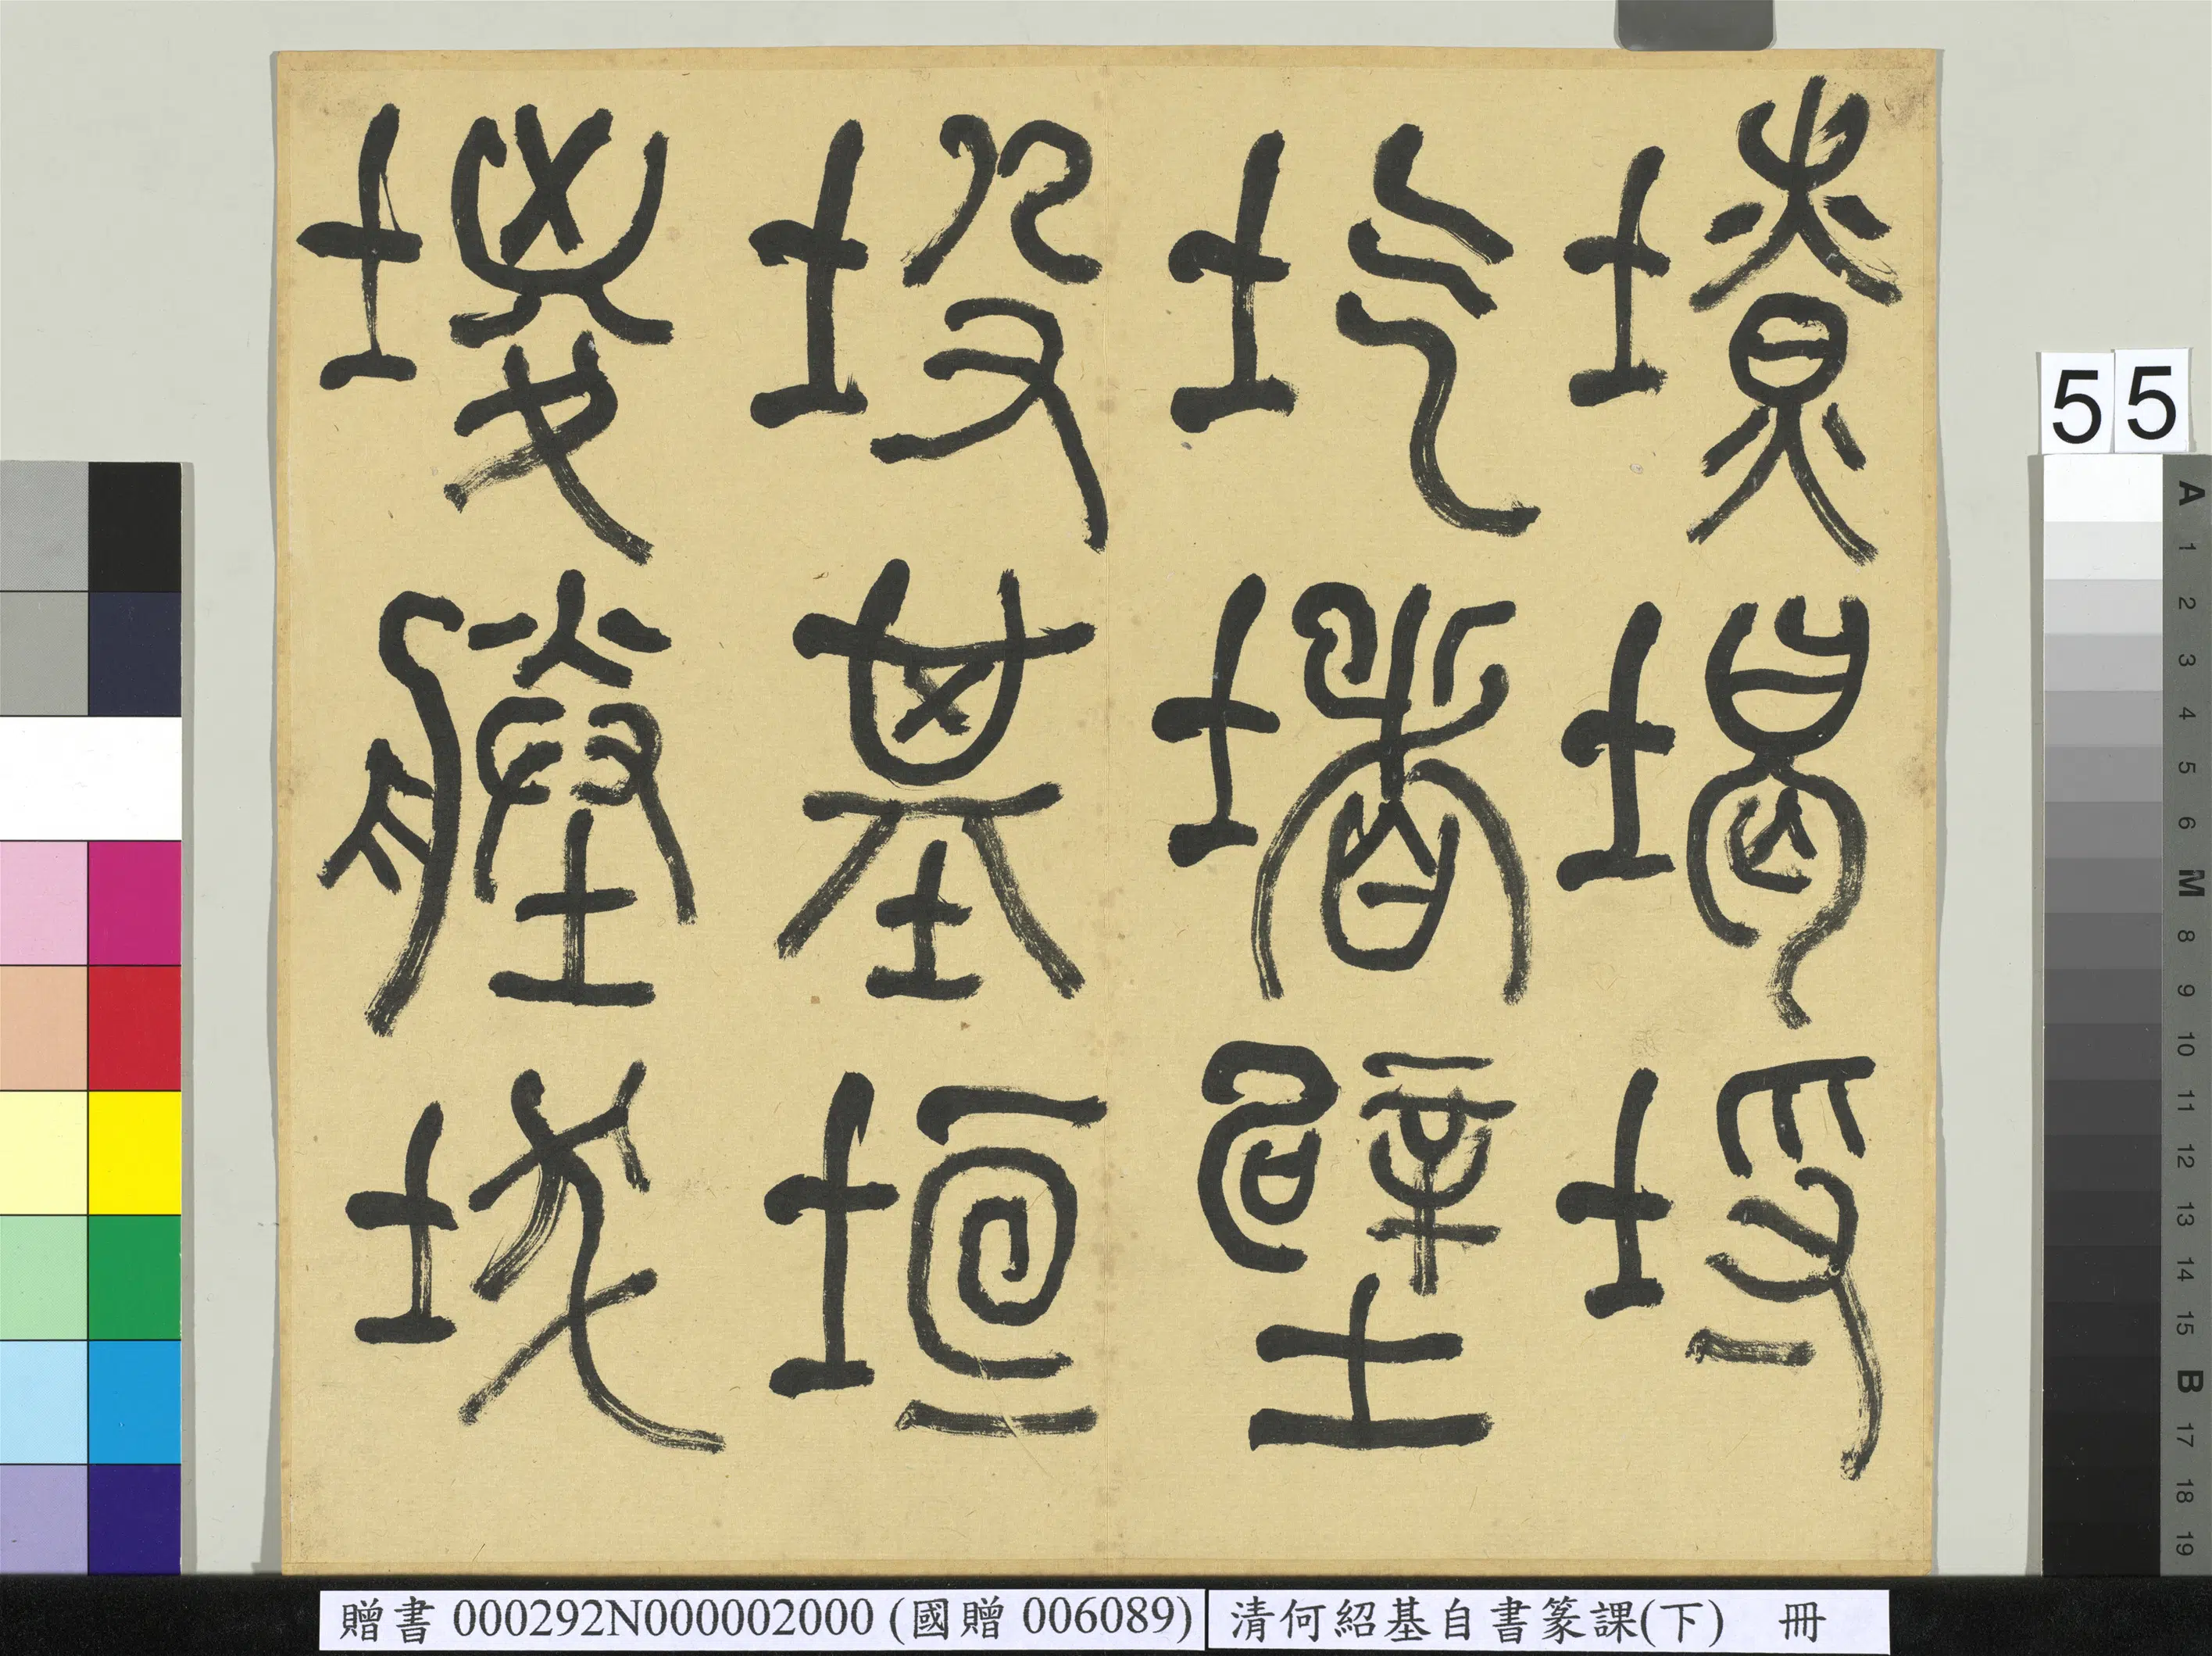 堫塍坺
坄基垣
圪堵壁
㙩堨埒
55
A 1 2 3 4 5 6 M 8 9 10 11 12 13 14 15 B 17 18 19
贈書 000292N000002000 (國贈 006089)
清何紹基自書篆課(下) 冊